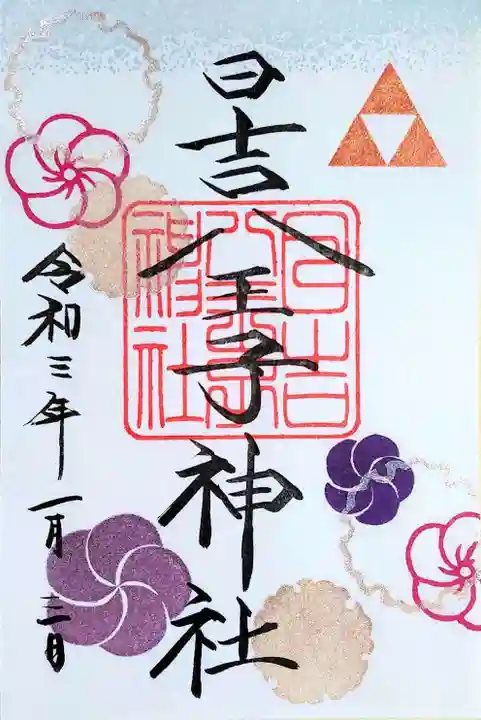 日吉八王子神社
日吉
八王子
神社
令和三年一月三日